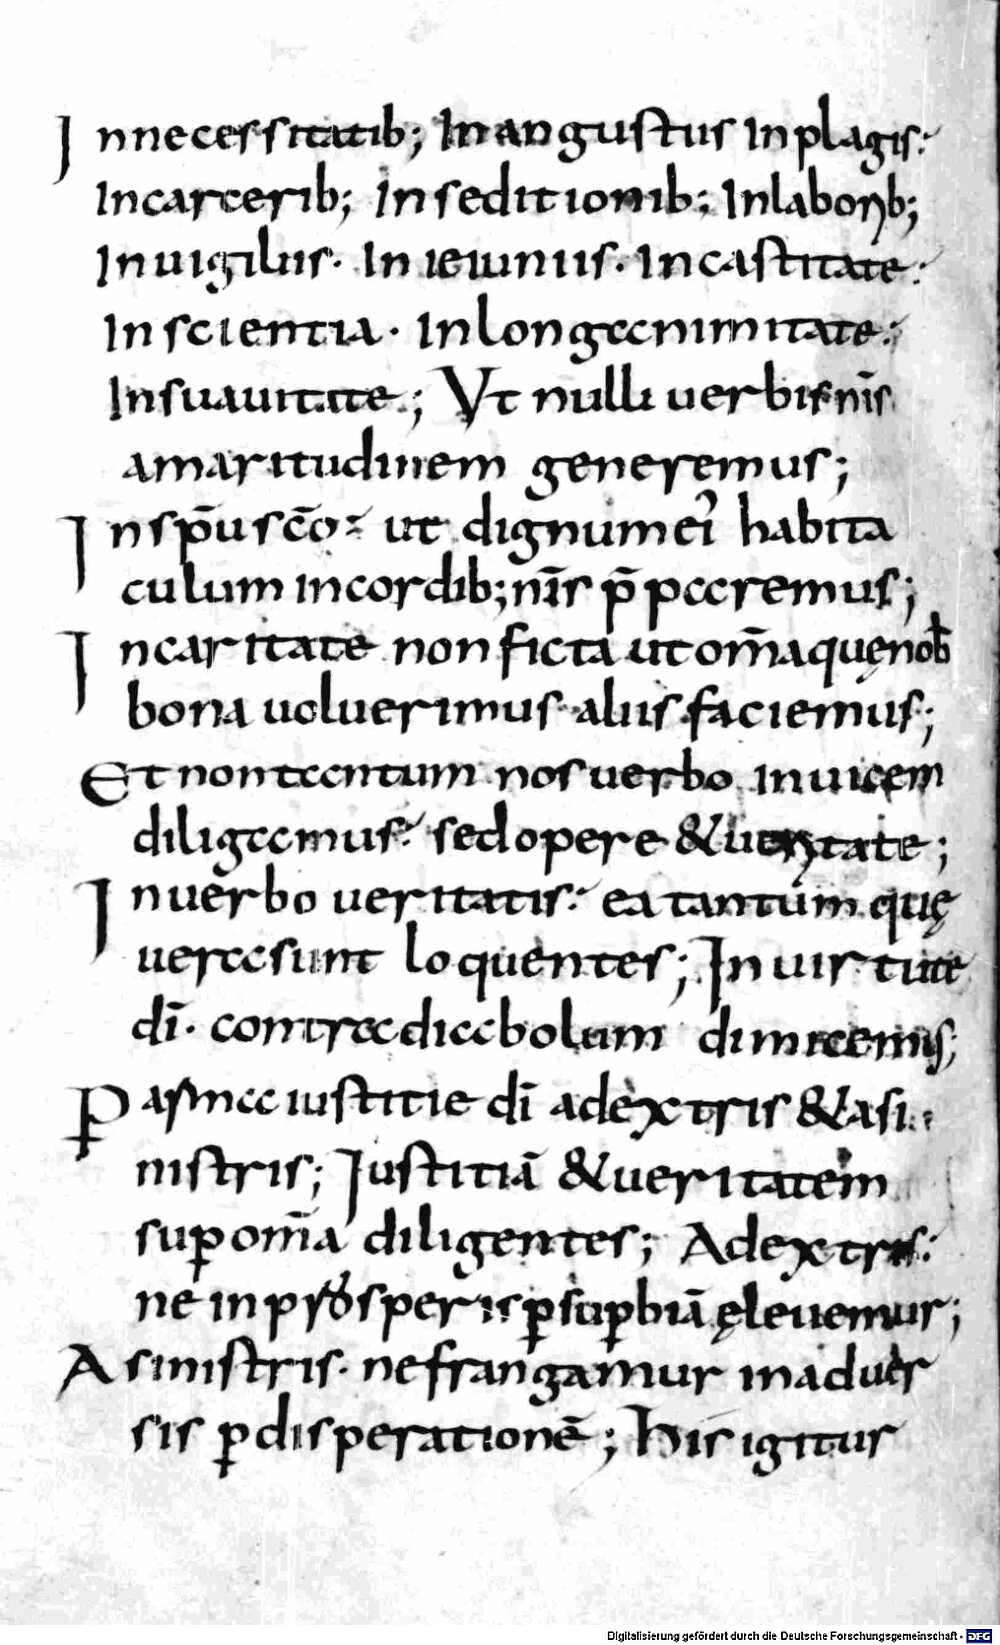 In necessitatib; In angustiis In plagis:
In carcerib; In seditionib; In laborib;
In uigiliis. In ieiuniis. In castitate:
In scientia. In longanimitate:
In suauitate; Ut nulli uerbis nr̄is
amaritudinem generemus;
In sp̄u sc̄o: ut dignum ei habita
culum in cordib; nr̄is p̄paremus;
In caritate non ficta ut om̄a quę nob̄
bona uoluerimus aliis faciemus;
Et non tantum nos uerbo inuicem
diligamus: sed opere & ueritate;
In uerbo ueritatis: ea tantum quę
uera sunt loquentes; In uirtute
dī. contra diabolum dimicemus;
P̱ arma iustitie dī a dextris & a si
nistris; Iustitiā & ueritatem
sup̱ om̄a diligentes; A dextris:
ne in prosperis p̱ sup̱biā ęleuemur;
A sinistris. ne frangamur in aduer
sis p̱ disperationē; His igitur
Digitalisierung gefördert durch die Deutsche Forschungsgemeinschaft - DFG